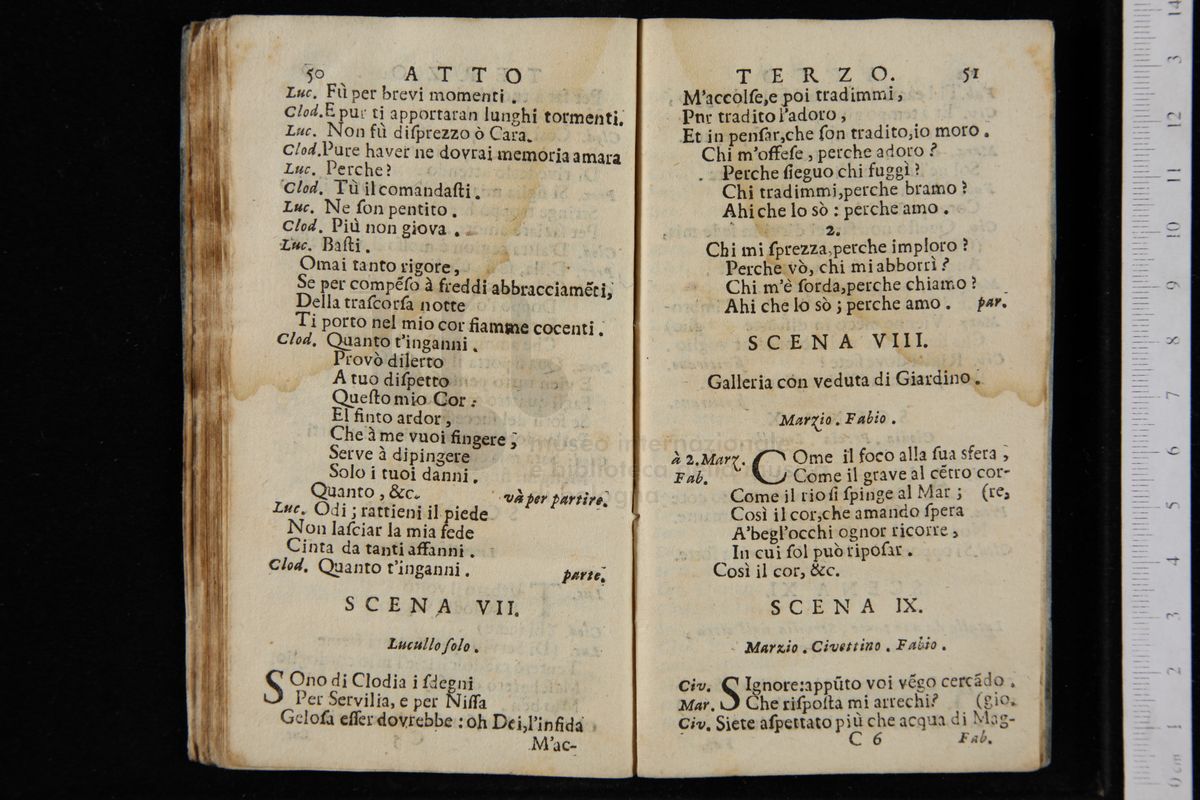 50 ATTO
Luc. Fù per brevi momenti .
Clod. E pur ti apportaran lunghi tormenti.
Luc. Non fù diſprezzo ò Cara.
Clod. Pure haver ne dovrai memoria amara
Luc. Perche?
Clod. Tù il comandaſti .
Luc. Ne ſon pentito .
Clod. Più non giova .
Luc. Baſti .
Omai tanto rigore ,
Se per compẽſo à freddi abbracciamẽti,
Della traſcorſa notte
Ti porto nel mio cor fiamme cocenti .
Clod. Quanto t'inganni .
Provò dilerto
A tuo diſpetto
Queſto mio Cor :
El finto ardor ,
Che à me vuoi fingere ;
Serve à dipingere
Solo i tuoi danni .
Quanto , &c. và per partire.
Luc. Odi ; rattieni il piede
Non laſciar la mia fede
Cinta da tanti affanni .
Clod. Quanto t'inganni . parte.
SCENA VII.
Lucullo ſolo .
SOno di Clodia i ſdegni
Per Servilia, e per Niſſa
Geloſa eſſer dovrebbe : oh Dei,l'infida
M'ac-
TERZO. 51
M'accolſe,e poi tradimmi ,
Pnr tradito l'adoro ,
Et in penſar,che ſon tradito,io moro .
Chi m'offeſe , perche adoro ?
Perche ſieguo chi fuggì ?
Chi tradimmi,perche bramo ?
Ahi che lo sò : perche amo .
2.
Chi mi ſprezza,perche imploro ?
Perche vò, chi mi abborrì ?
Chi m'è ſorda,perche chiamo ?
Ahi che lo sò ; perche amo . par.
SCENA VIII.
Galleria con veduta di Giardino .
Marzio . Fabio .
à 2. Marz. COme il foco alla ſua sfera ,
Fab. Come il grave al cẽtro cor-
Come il rio ſi ſpinge al Mar ; (re,
Così il cor,che amando ſpera
A'begl'occhi ognor ricorre ,
In cui ſol può ripoſar .
Così il cor, &c.
SCENA IX.
Marzio . Civettino . Fabio .
Civ. SIgnore:appũto voi vẽgo cercãdo .
Mar. Che riſpoſta mi arrechi? (gio.
Civ. Siete aſpettato più che acqua di Mag-
C 6 Fab.
museo internazionale
e biblioteca della musica
bologna